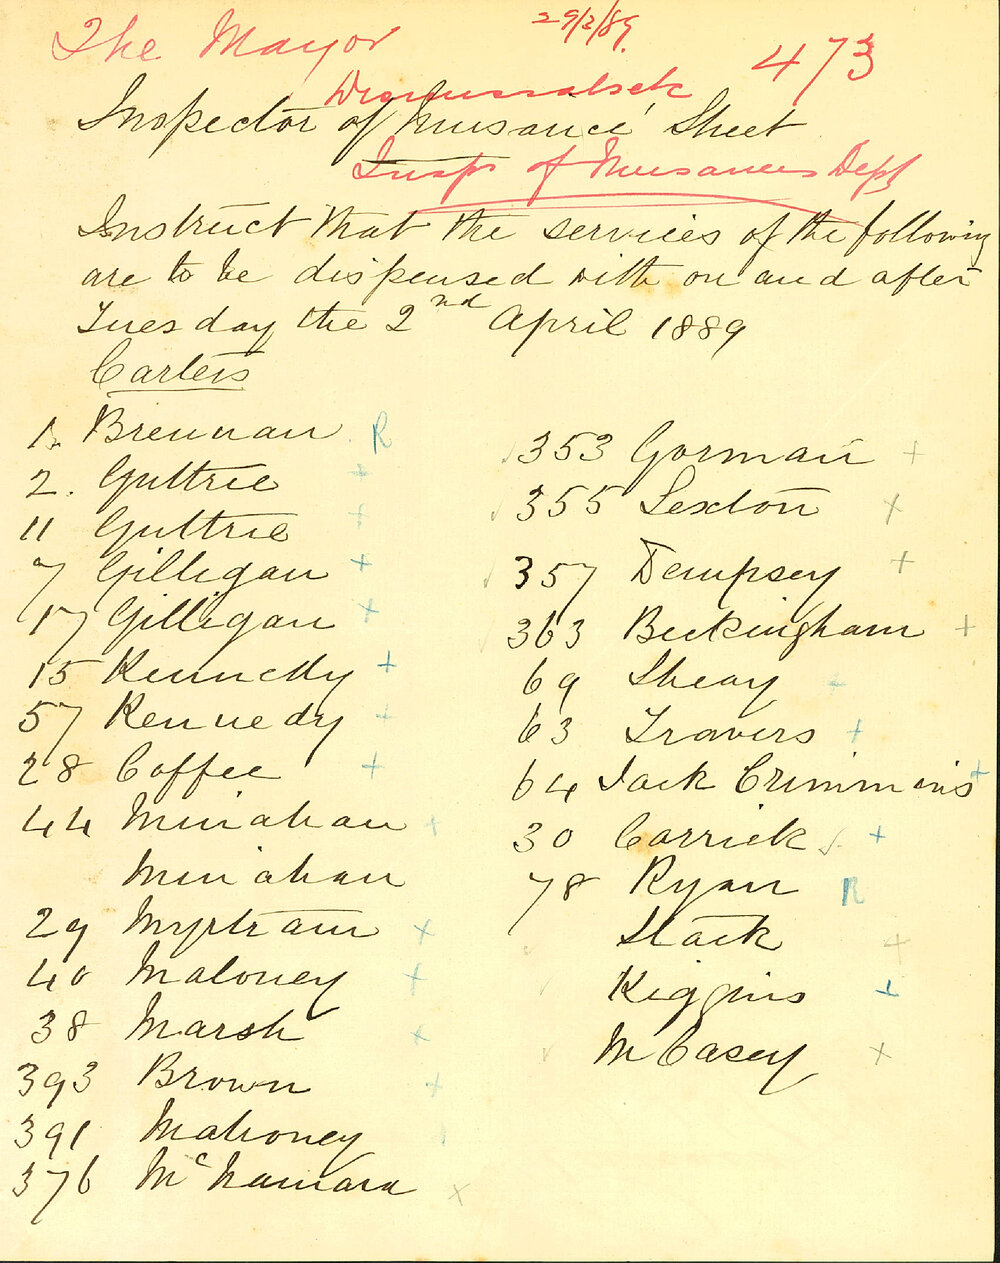 29/3/89.
The Mayor
473
Dismissals etc
Inspector of Nuisance Sheet
Insp of Nuisances Dept
Instruct that the services of the following
are to be dispensed with on and after
Tuesday the 2nd April 1889
Carters
1. Brennan R
2. Guttrie +
11 Guttrie +
7 Gilligan +
17 Gilligan +
15 Kennedy +
57 Kennedy +
28 Coffee +
44 Minahan +
Minahan
29 Myrtram +
40 Maloney +
38 Marsh +
393 Brown +
391 Mahoney
376 McNamara x
✓ 353 Gorman +
✓ 355 Sexton +
✓ 357 Dempsey +
✓ 363 Beckingham +
69 Sheay -
63 Travers +
64 Jack Crimmins +
30 Carrick ✓. +
78 Ryan R
✓ Stack +
✓ Kiggins +
✓ M Casey +